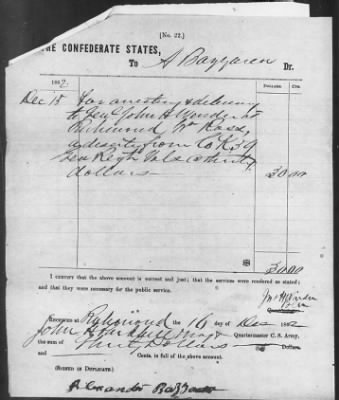 [No. 22.]
THE CONFEDERATE STATES,
To A Bazzaren Dr.
1862. Dollars Cts.
Dec 15 For arresting & delivering
to Genl John H Winder at
Richmond Wm Ross,
a deserter from Co K 59
Geo Regt Vols thirty
dollars 30 00
30 00
I certify that the above account is correct and just; that the services were rendered as stated;
and that they were necessary for the public service.
Jno H Winder
RECEIVED at Richmond the 16 day of Dec 1862
John H Quartermaster C. S. Army,
the sum of Thirty Dollars Dollars
and Cents, in full of the above account.
(SIGNED IN DUPLICATE.)
Alexander